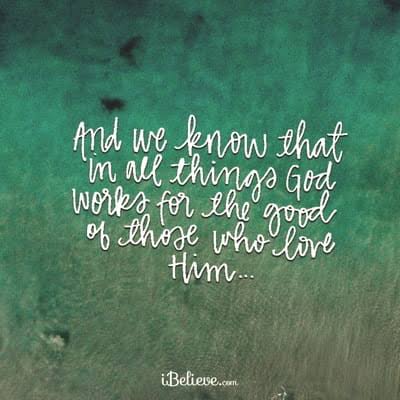 And we know that
in all things God
works for the good
of those who love
Him...
iBelieve.com